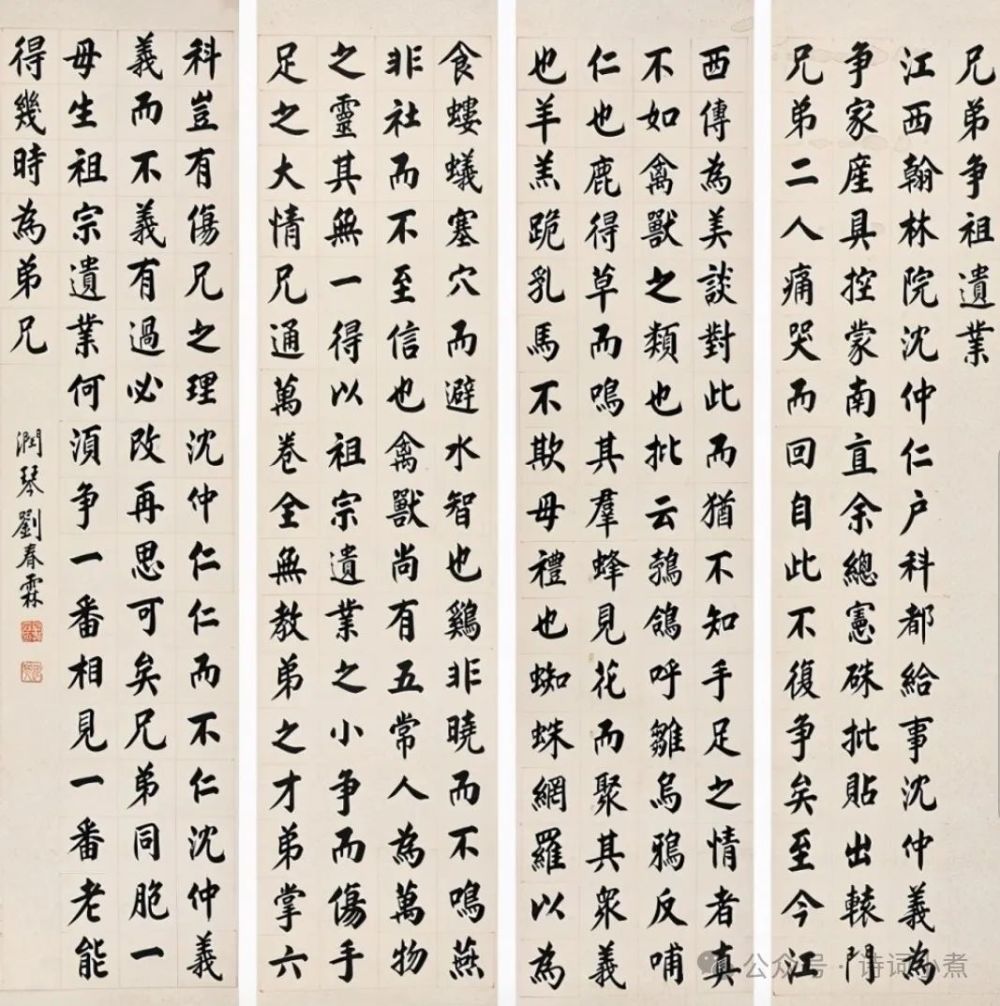 兄弟争祖遺業
江西翰林院沈仲仁户科都給事沈仲義為
争家産具控蒙南直余總憲硃批貼出轅門
兄弟二人痛哭而回自此不復争矣至今江
西傳為美談對此而猶不知手足之情者真
不如禽獸之類也批云鵓鴿呼雛烏鴉反哺
仁也鹿得草而鳴其羣蜂見花而聚其眾義
也羊羔跪乳馬不欺母禮也蜘蛛網羅以為
食螻蟻塞穴而避水智也鷄非曉而不鳴燕
非社而不至信也禽獸尚有五常人為萬物
之靈其無一得以祖宗遺業之小争而傷手
足之大情兄通萬卷全無教弟之才弟掌六
科豈有傷兄之理沈仲仁仁而不仁沈仲義
義而不義有過必改再思可矣兄弟同胞一
母生祖宗遺業何須争一番相見一番老能
得幾時為弟兄
潤琴劉春霖
公众号·诗词小煮